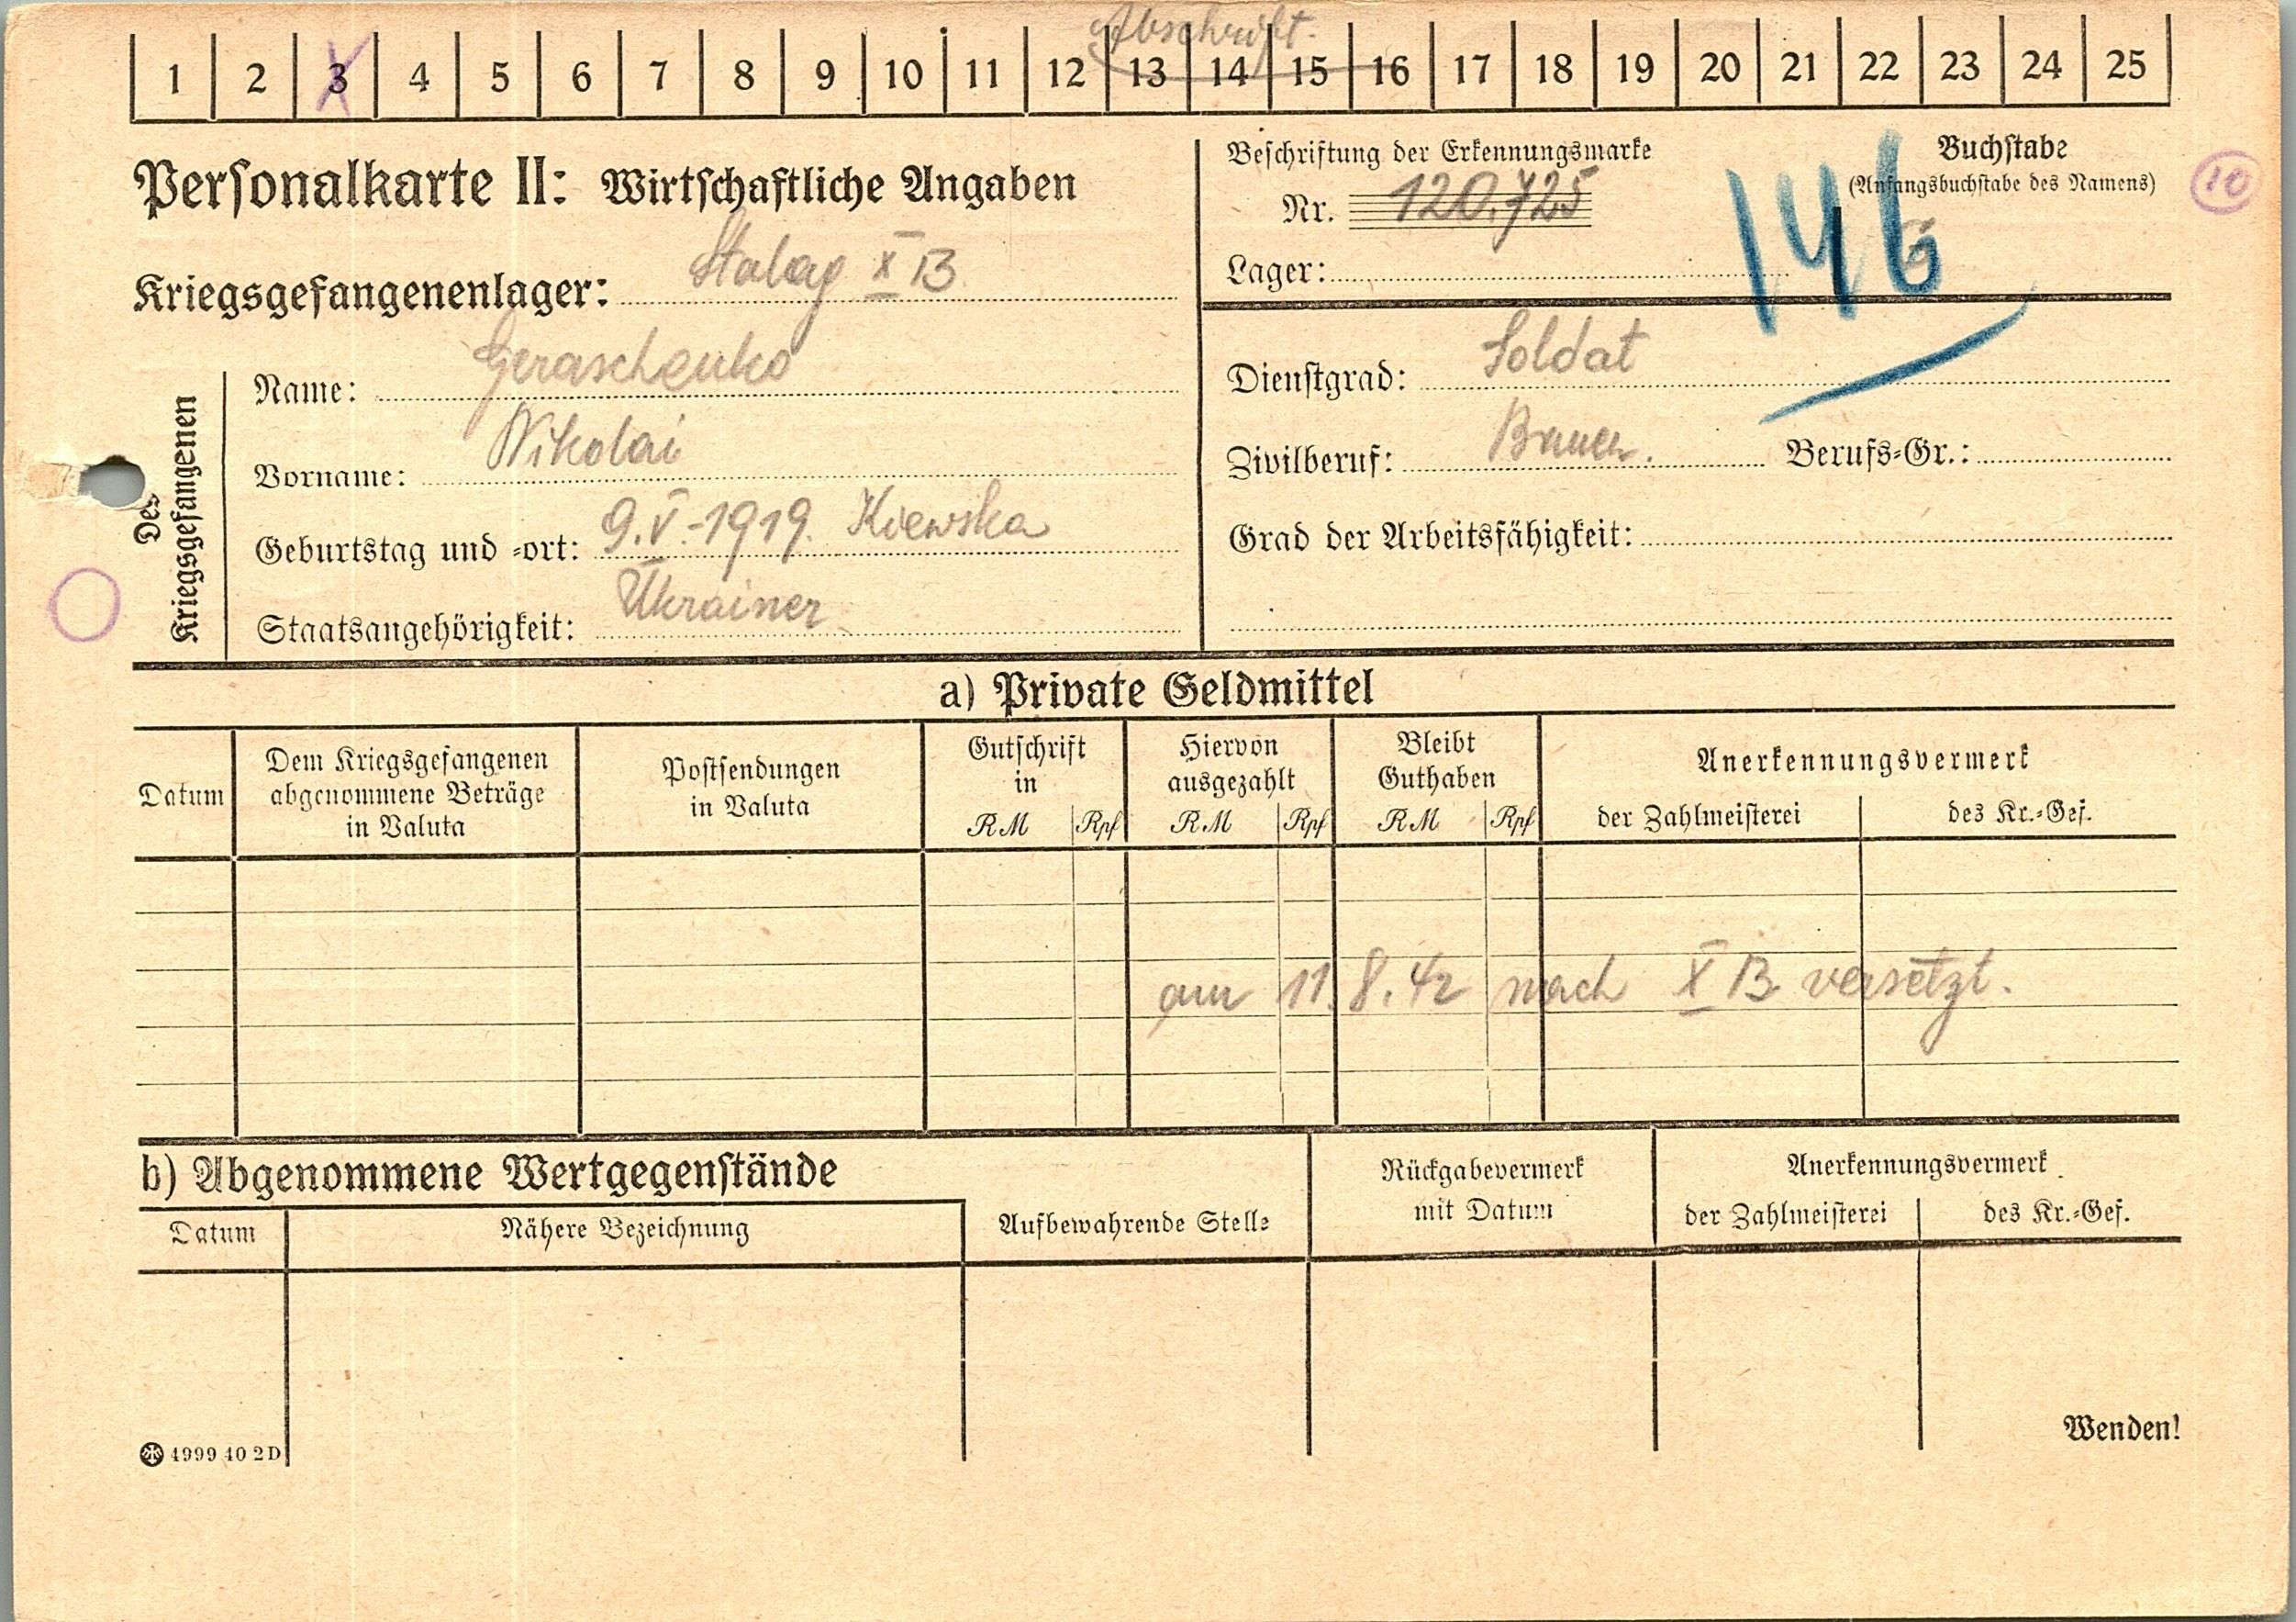 Abschrift.
1 2 3 4 5 6 7 8 9 10 11 12 13 14 15 16 17 18 19 20 21 22 23 24 25
Personalkarte II: Wirtschaftliche Angaben
Kriegsgefangenenlager: Stalag X B
Beschriftung der Erkennungsmarke
Nr. 120.725
Lager:
Buchstabe
(Anfangsbuchstabe des Namens)
G
146
10
Des Kriegsgefangenen
Name: Geraschenko
Vorname: Nikolai
Geburtstag und -ort: 9.V.-1919. Kiewska
Staatsangehörigkeit: Ukrainer
Dienstgrad: Soldat
Zivilberuf: Bauer. Berufs-Gr.:
Grad der Arbeitsfähigkeit:
a) Private Geldmittel
Datum
Dem Kriegsgefangenen
abgenommene Beträge
in Valuta
Postsendungen
in Valuta
Gutschrift
in
RM Rpf
Hiervon
ausgezahlt
RM Rpf
Bleibt
Guthaben
RM Rpf
Anerkennungsvermerk
der Zahlmeisterei des Kr.-Gef.
am 11.8.42 nach X B versetzt.
b) Abgenommene Wertgegenstände
Datum Nähere Bezeichnung
Aufbewahrende Stelle
Rückgabevermerk
mit Datum
Anerkennungsvermerk
der Zahlmeisterei des Kr.-Gef.
4999 40 2D
Wenden!